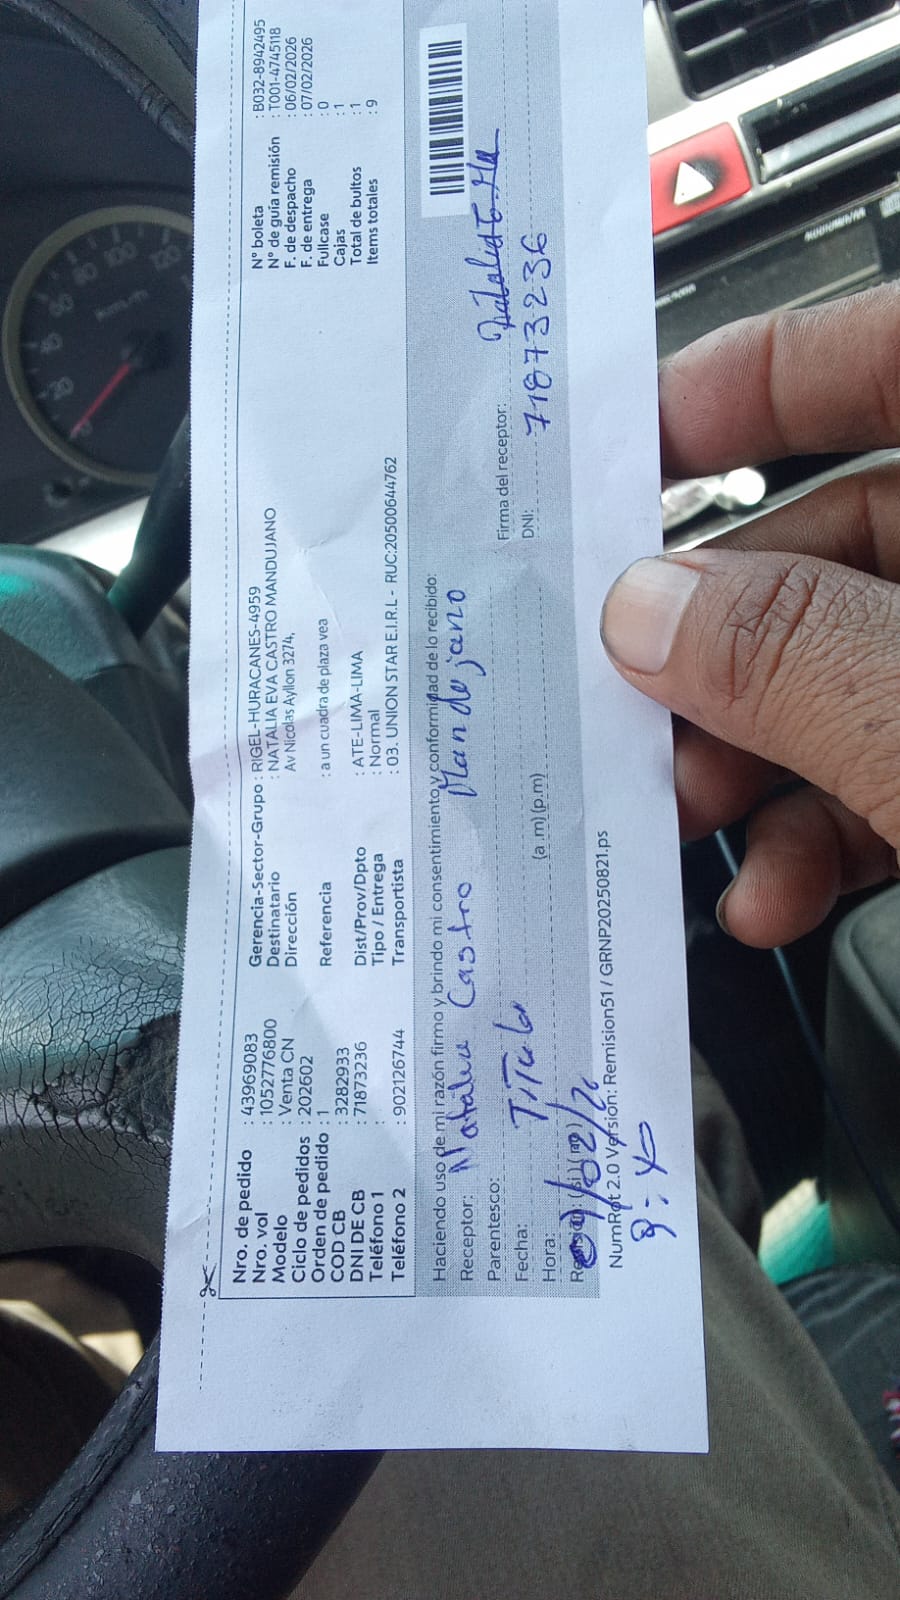 Nro. de pedido : 43969083
Nro. vol : 1052776800
Modelo : Venta CN
Ciclo de pedidos : 202602
Orden de pedido : 1
COD CB : 3282933
DNI DE CB : 71873236
Teléfono 1 :
Teléfono 2 : 902126744
Gerencia-Sector-Grupo : RIGEL-HURACANES-4959
Destinatario : NATALIA EVA CASTRO MANDUJANO
Dirección Av Nicolas Ayllon 3274,
Referencia : a un cuadra de plaza vea
Dist/Prov/Dpto : ATE-LIMA-LIMA
Tipo / Entrega : Normal
Transportista : 03. UNION STAR E.I.R.L - RUC:20500644762
N° boleta : B032-8942495
N° de guía remisión : T001-4745118
F. de despacho : 06/02/2026
F. de entrega : 07/02/2026
Fullcase : 0
Cajas : 1
Total de bultos : 1
Items totales : 9
Haciendo uso de mi razón firmo y brindo mi consentimiento y conformidad de lo recibido:
Receptor: Natalia Castro Mandojano
Parentesco: Titula
Firma del receptor:
Fecha:
DNI: 71873236
Hora: (a .m) (p.m)
NumRot 2.0 Version: Remision51 / GRNP20250821.ps
20
40
60
80
100
120
km/h